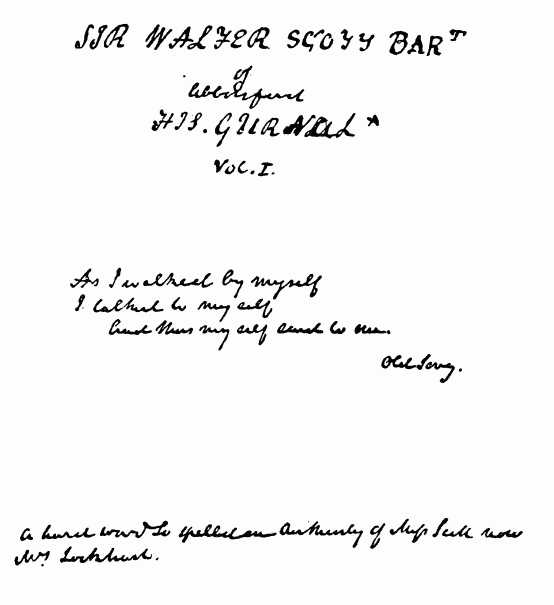 SIR WALTER SCOTT BART
of
Abbotsford
HIS. GURNAL *
VOL. I.
As I walked by myself
I talked to my self
And thus my self said to me.
Old Song.
A hard word so spelld on Authority of Miss Scott now
Mrs. Lockhart.